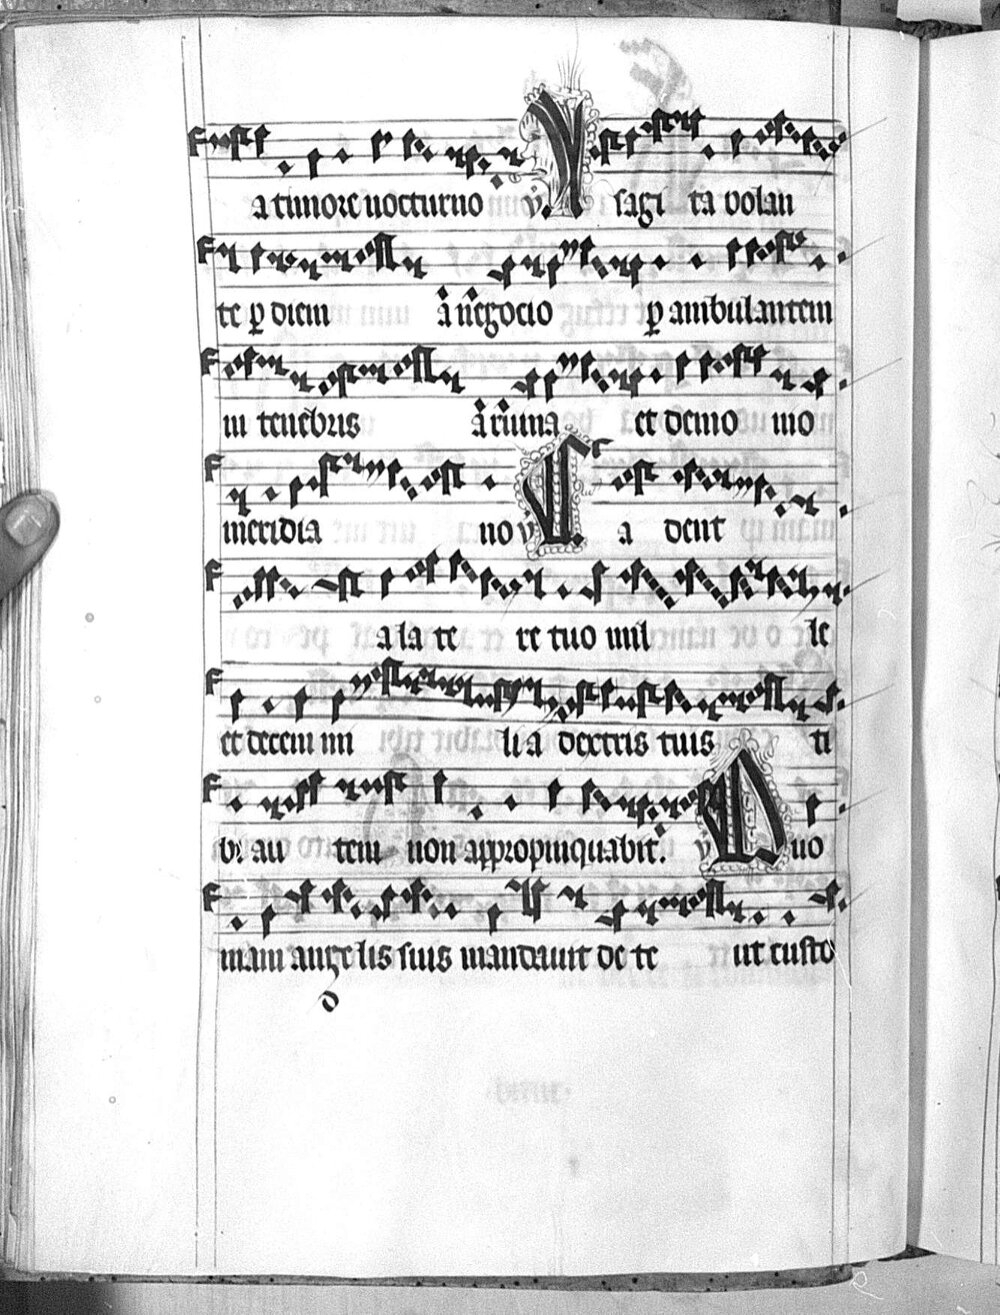 a timore nocturno ℣. A sagi ta volan
te ꝑ diem ā negocio ꝑ ambulantem
in tenebris ā ruina et demo nio
meridia no ℣. C a dent
a la te re tuo mil le
et decem mi lia dextris tuis ti
bi au tem non appropinquabit. ℣ Quo
niam ange lis suis mandavit de te ut custo
d